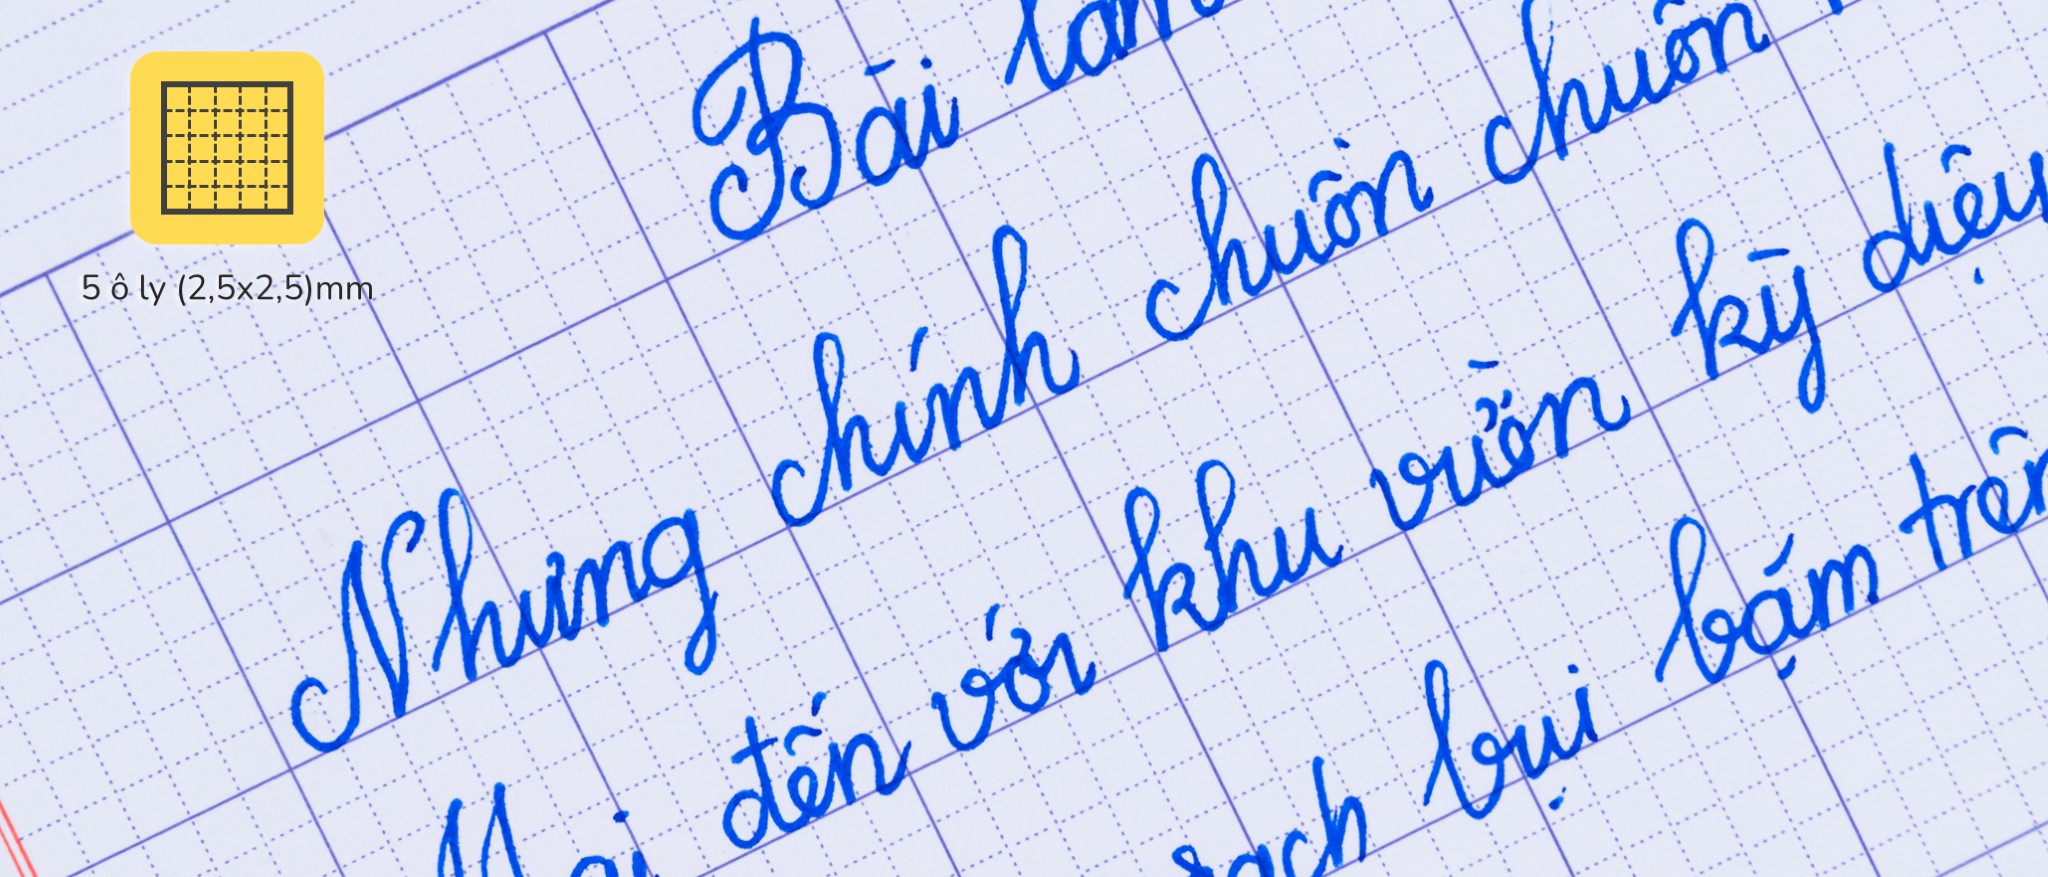 5 ô ly (2,5x2,5)mm
Bài làm
Nhưng chính chuồn chuồn
đến với khu vườn kỳ diệu
sạch bụi bặm trên